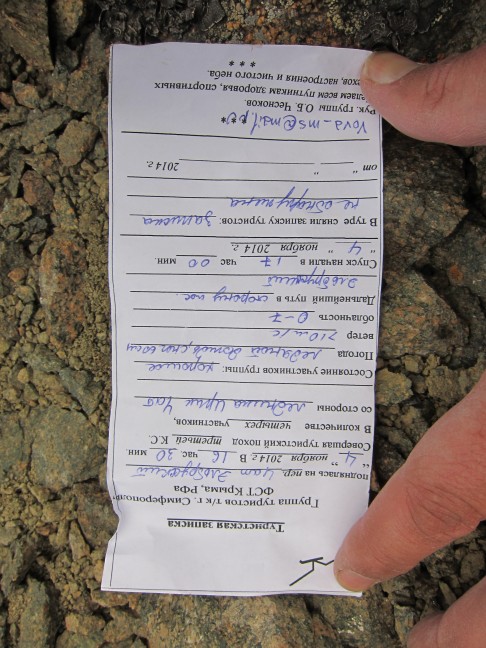 Туристская записка
Группа туристов т/к г. Симферополь
ФСТ Крыма, РФа
поднялась на пер. Чат Эльбрусский
" 4 " ноября 2014 г. В 16 час 30 мин.
Совершая туристский поход третьей К.С.
В количестве четырех участников,
со стороны ледника Ирик Чат
Состояние участников группы: хорошее
Погода ледяной
ветер 710 м/с
облачность 0-7
Дальнейший путь в сторону пос.
Эльбрусский
Спуск начали в 17 час 00 мин.
" 4 " ноября 2014 г.
В туре сняли записку туристов: записка
не обнаружена
от " " 2014 г.
Vova_ms@mail.ру
* *
Рук. группы О.Б. Чесноков.
Желаем всем путникам здоровья, спортивных
успехов, настроения и чистого неба.
* * *